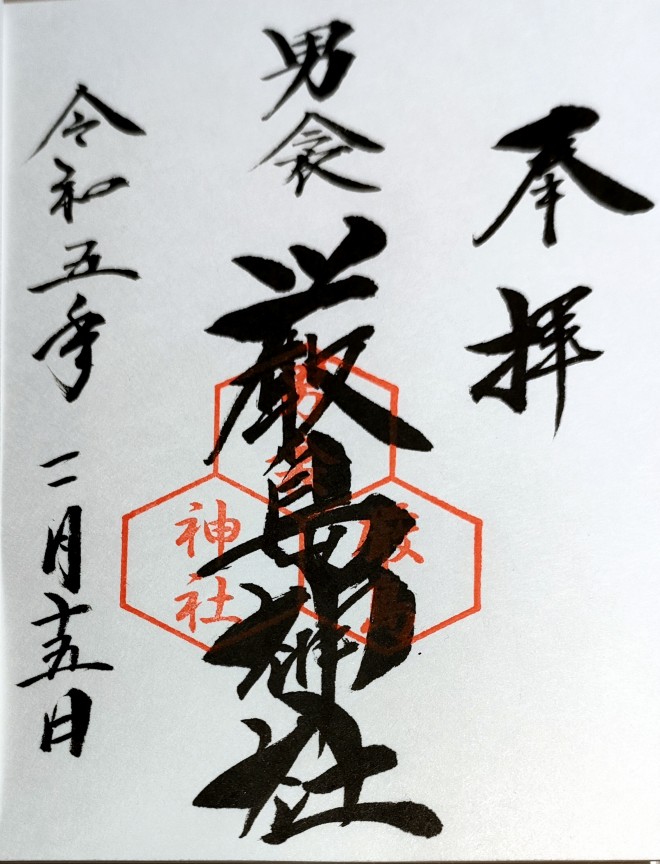 奉拝
男衾
厳島神社
神社
令和五年二月十五日